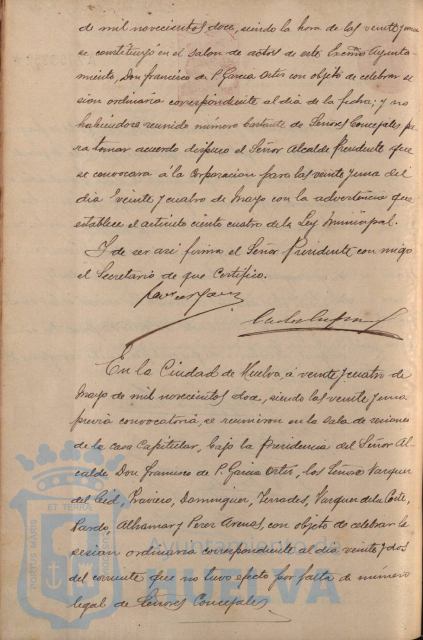 de mil novecientos doce, siendo la hora de las veinte y una
se constituyó en el salon de actos de este Excmo Ayunta-
miento, Don Francisco de P. Garcia Ortiz con objeto de celebrar se
sion ordinaria correspondiente al dia de la fecha; y no
habiendose reunido número bastante de Señores Concejales pa
ra tomar acuerdo dispuso el Señor Alcalde Presidente que
se convocara á la Corporacion para las veinte y una del
dia veinte y cuatro de Mayo con la advertencia que
establece el articulo ciento cuatro de la Ley Municipal.
Y de ser asi firma el Señor Presidente conmigo
el Secretario de que Certifico.
En la Ciudad de Huelva, á veinte y cuatro de
Mayo de mil novecientos doce, siendo las veinte y una
previa convocatoria, se reunieron en la sala de sesiones
de la casa Capitular, bajo la Presidencia del Señor Al-
calde Don Francisco de P. Garcia Ortiz, los Señores Vazquez
del Cid, Dominguez, Terrades, Vazquez de la Corte,
Pardo, y Perez, con objeto de celebrar la
sesion ordinaria correspondiente al dia veinte y dos
del corriente que no tuvo efecto por falta de número
legal de Señores Concejales
PORTUS MARIS ET TERRAE CUSTODIA
Ayuntamiento de
HUELVA